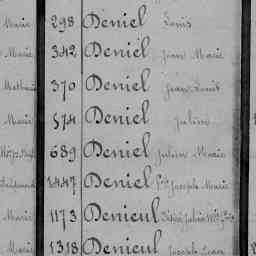 Marie 298 Deniel Louis
Marie 342 Deniel Jean Marie
Mathurin 370 Deniel Jean Louis
Marie 574 Deniel Julien
689 Deniel Julien Marie
1447 Deniel Joseph Marie
Marie 1173 Denieul
Marie 1318 Denieul Joseph